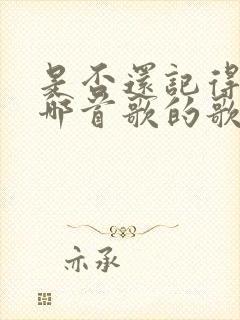 是否還記得
那首歌的歌
亦承